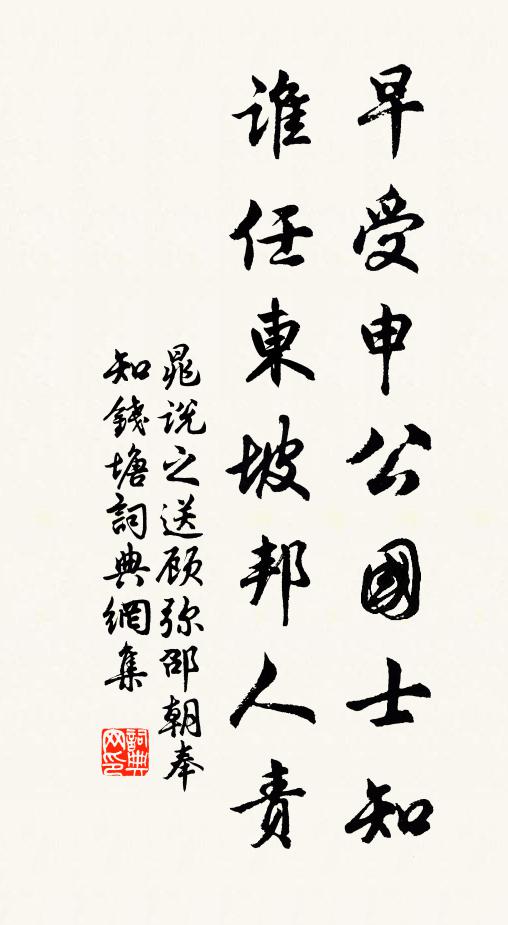 早受申公國士知
誰任東坡邦人責
晁说之送顾弥邵朝奉
知錢塘詞典網集
詞典
网印